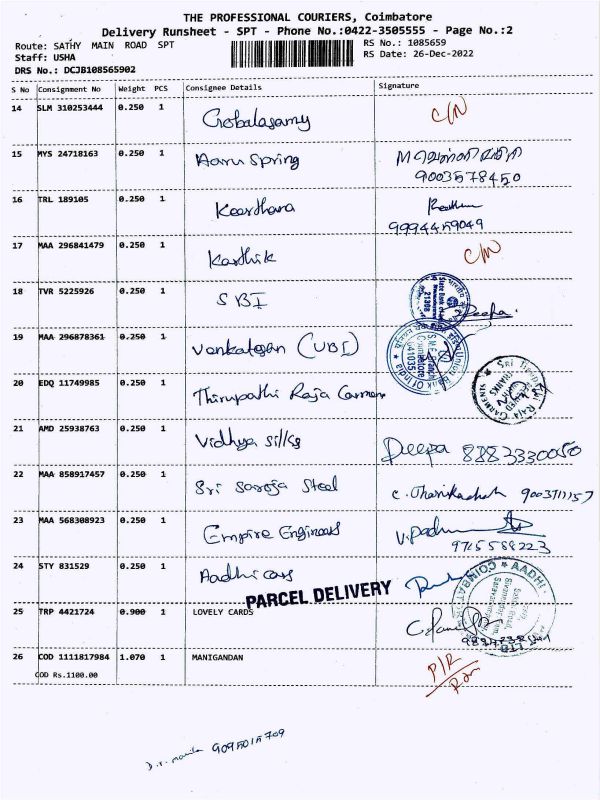 THE PROFESSIONAL COURIERS, Coimbatore
Delivery Runsheet - SPT - Phone No.:0422-3505555 - Page No.:2
Route: SATHY MAIN ROAD SPT
RS No.: 1085659
Staff: USHA
RS Date: 26-Dec-2022
DRS No.: DCJB108565902
S No Consignment No Weight PCS Consignee Details Signature
14 SLM 310253444 0.250 1 Gobalasamy C/N
15 MYS 24718163 0.250 1 Aaru Spring
9003578450
16 TRL 189105 0.250 1 Keerthana
9994459049
17 MAA 296841479 0.250 1 Karthik C/N
18 TVR 5225926 0.250 1 SBI Deepa
19 MAA 296878361 0.250 1 Venkatesan (UBI)
Union Bank Of India
641035
20 EDQ 11749985 0.250 1 Thirupathi Raja Garmens
21 AMD 25938763 0.250 1 Vidhya silks Deepa 8883330050
22 MAA 858917457 0.250 1 Sri Saroja Steel
23 MAA 568308923 0.250 1 Empire Engineers
9715588223
24 STY 831529 0.250 1 Aadhi cars
PARCEL DELIVERY
AADHI
COIMBATORE
25 TRP 4421724 0.900 1 LOVELY CARDS
26 COD 1111817984 1.070 1 MANIGANDAN
COD Rs.1100.00
9095015709